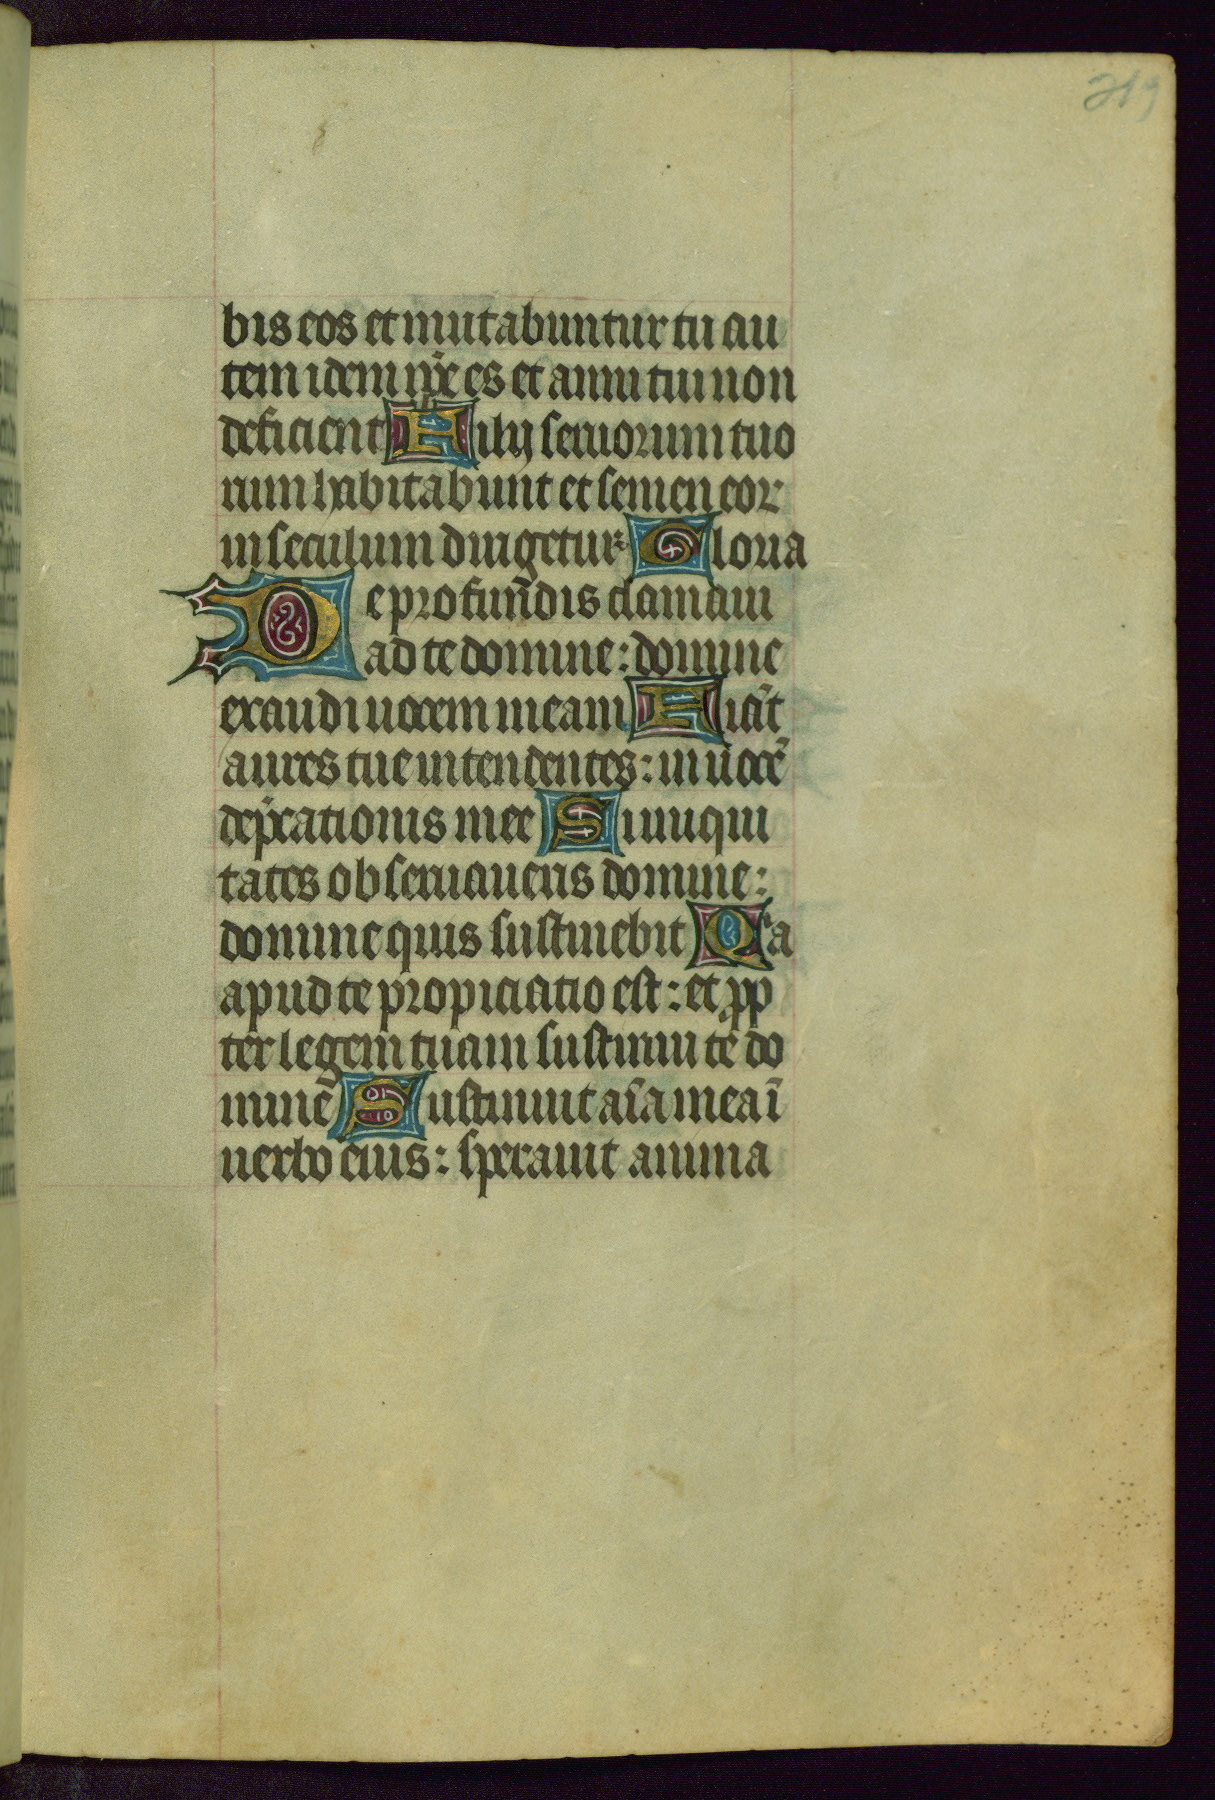 219
bis eos et mutabuntur tu au
tem idem ip̄e es et anni tui non
deficient Filij seruorum tuo
rum habitabunt et semen eor
in seculum dirigetur Gloria
De profun̄dis clamaui
ad te domine: domine
exaudi uocem meam Fiāt
aures tue intendentes: in uocē
dep̄cationis mee Si iniqui
tates obseruaueris domine:
domine quis sustinebit Qͥa
apud te propiciatio est: et ꝓp
ter legem tuam sustinui te do
minē Sustinuit aīa mea ī
uerbo eius: sperauit anima